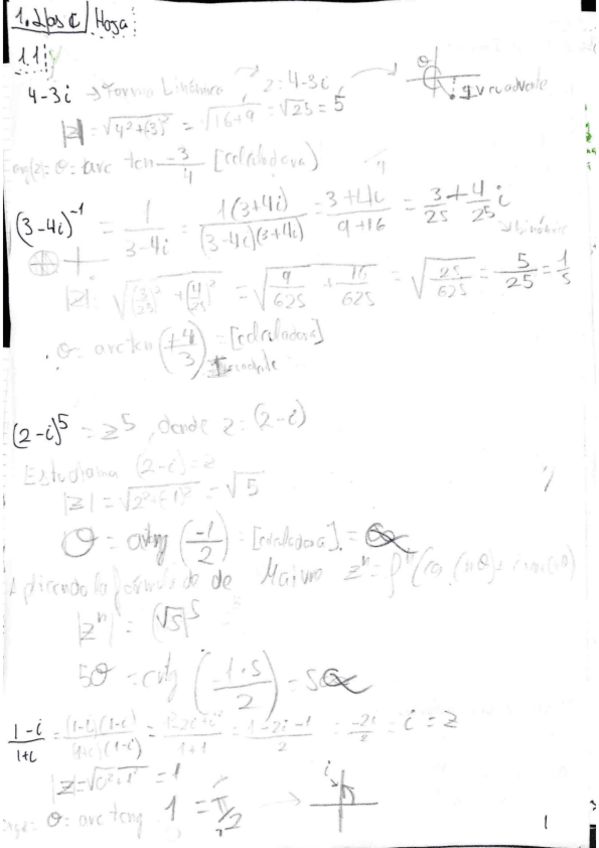 1.
Hoja
1.1
4-3i → Forma Binómica z = 4-3i
|z| = √(4²+(3)²) = √(16+9) = √25 = 5
θ = arc tan -3/4 [calculadora]
(3-4i)⁻¹ = 1/(3-4i) = 1(3+4i)/((3-4i)(3+4i)) = (3+4i)/(9+16) = 3/25 + 4/25 i
|z| = √((3/25)² + (4/25)²) = √(9/625 + 16/625) = √(25/625) = 5/25 = 1/5
θ = arc tan (+4/3) = [calculadora]
(2-i)⁵ = z⁵, donde z = (2-i)
Estudiamos (2-i) = z
|z| = √(2²+(-1)²) = √5
θ = arctg (-1/2) = [calculadora] = α
Aplicando la fórmula de de Moivre zⁿ = ρⁿ (cos (nθ) +
|zⁿ| = (√5)⁵
5θ = arctg (-1·5/2) = 5α
(1-i)/(1+i) = (1-i)(1-i)/((1+i)(1-i)) = (1-2i+i²)/(1+1) = (1-2i-1)/2 = -2i/2 = i = z
|z| = √(0²+1²) = 1
θ = arc tang 1 = π/2
i
1